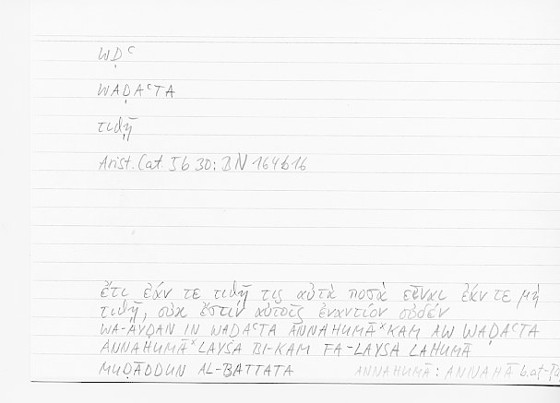 WḌʿ
WAḌAʿTA
τιθῇ
Arist. Cat. 5b30; BN 164b16
ἔτι ἐάν τε τιθῇ τις αὐτὰ ποσὰ εἶναι ἐάν τε μὴ
τιθῇ, οὐκ ἔστιν αὐτοῖς ἐναντίον οὐδέν
WA-AYḌAN IN WAḌAʿTA ANNAHUMĀ˟ KAM AW WAḌAʿTA
ANNAHUMĀ˟ LAYSA BI-KAM FA-LAYSA LAHUMĀ
MUḌĀDDUN AL-BATTATA ANNAHUMĀ: ANNAHĀ